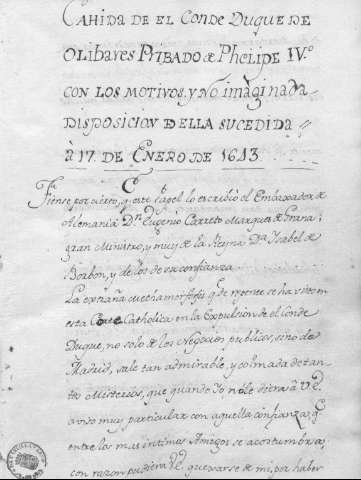 CAHIDA DE EL CONDE DUQUE DE
OLIBARES PRIBADO de PHELIPE IV.º
CON LOS MOTIVOS, Y NO imàginada
DISPOSICION DELLA SUCEDIDA
à 17. DE ENERO DE 1643.
Tienese por cierto, q este papel lo escribiò el Embaxador de
Alemania Dn. Eugenio Carreto Marques de Grana;
gran Ministro, y muy de la Reyna Dª Isabel de
Borbon, y de los de su confianza.
La extraña Methamorfosis que de repente se ha visto en
esta Corte Catholica en la Expulsion de el Conde
Duque, no solo de los Negocios publicos, sino de
Madrid, sale tan admirable, y colmada de tan-
tos Misterios, que quando Yo no le diera à V.E.
aviso muy particular con aquella confianza, q
entre los mas intimos Amigos se acostumbra;
con razon pudiera V.E. quexarse de mi, por haber